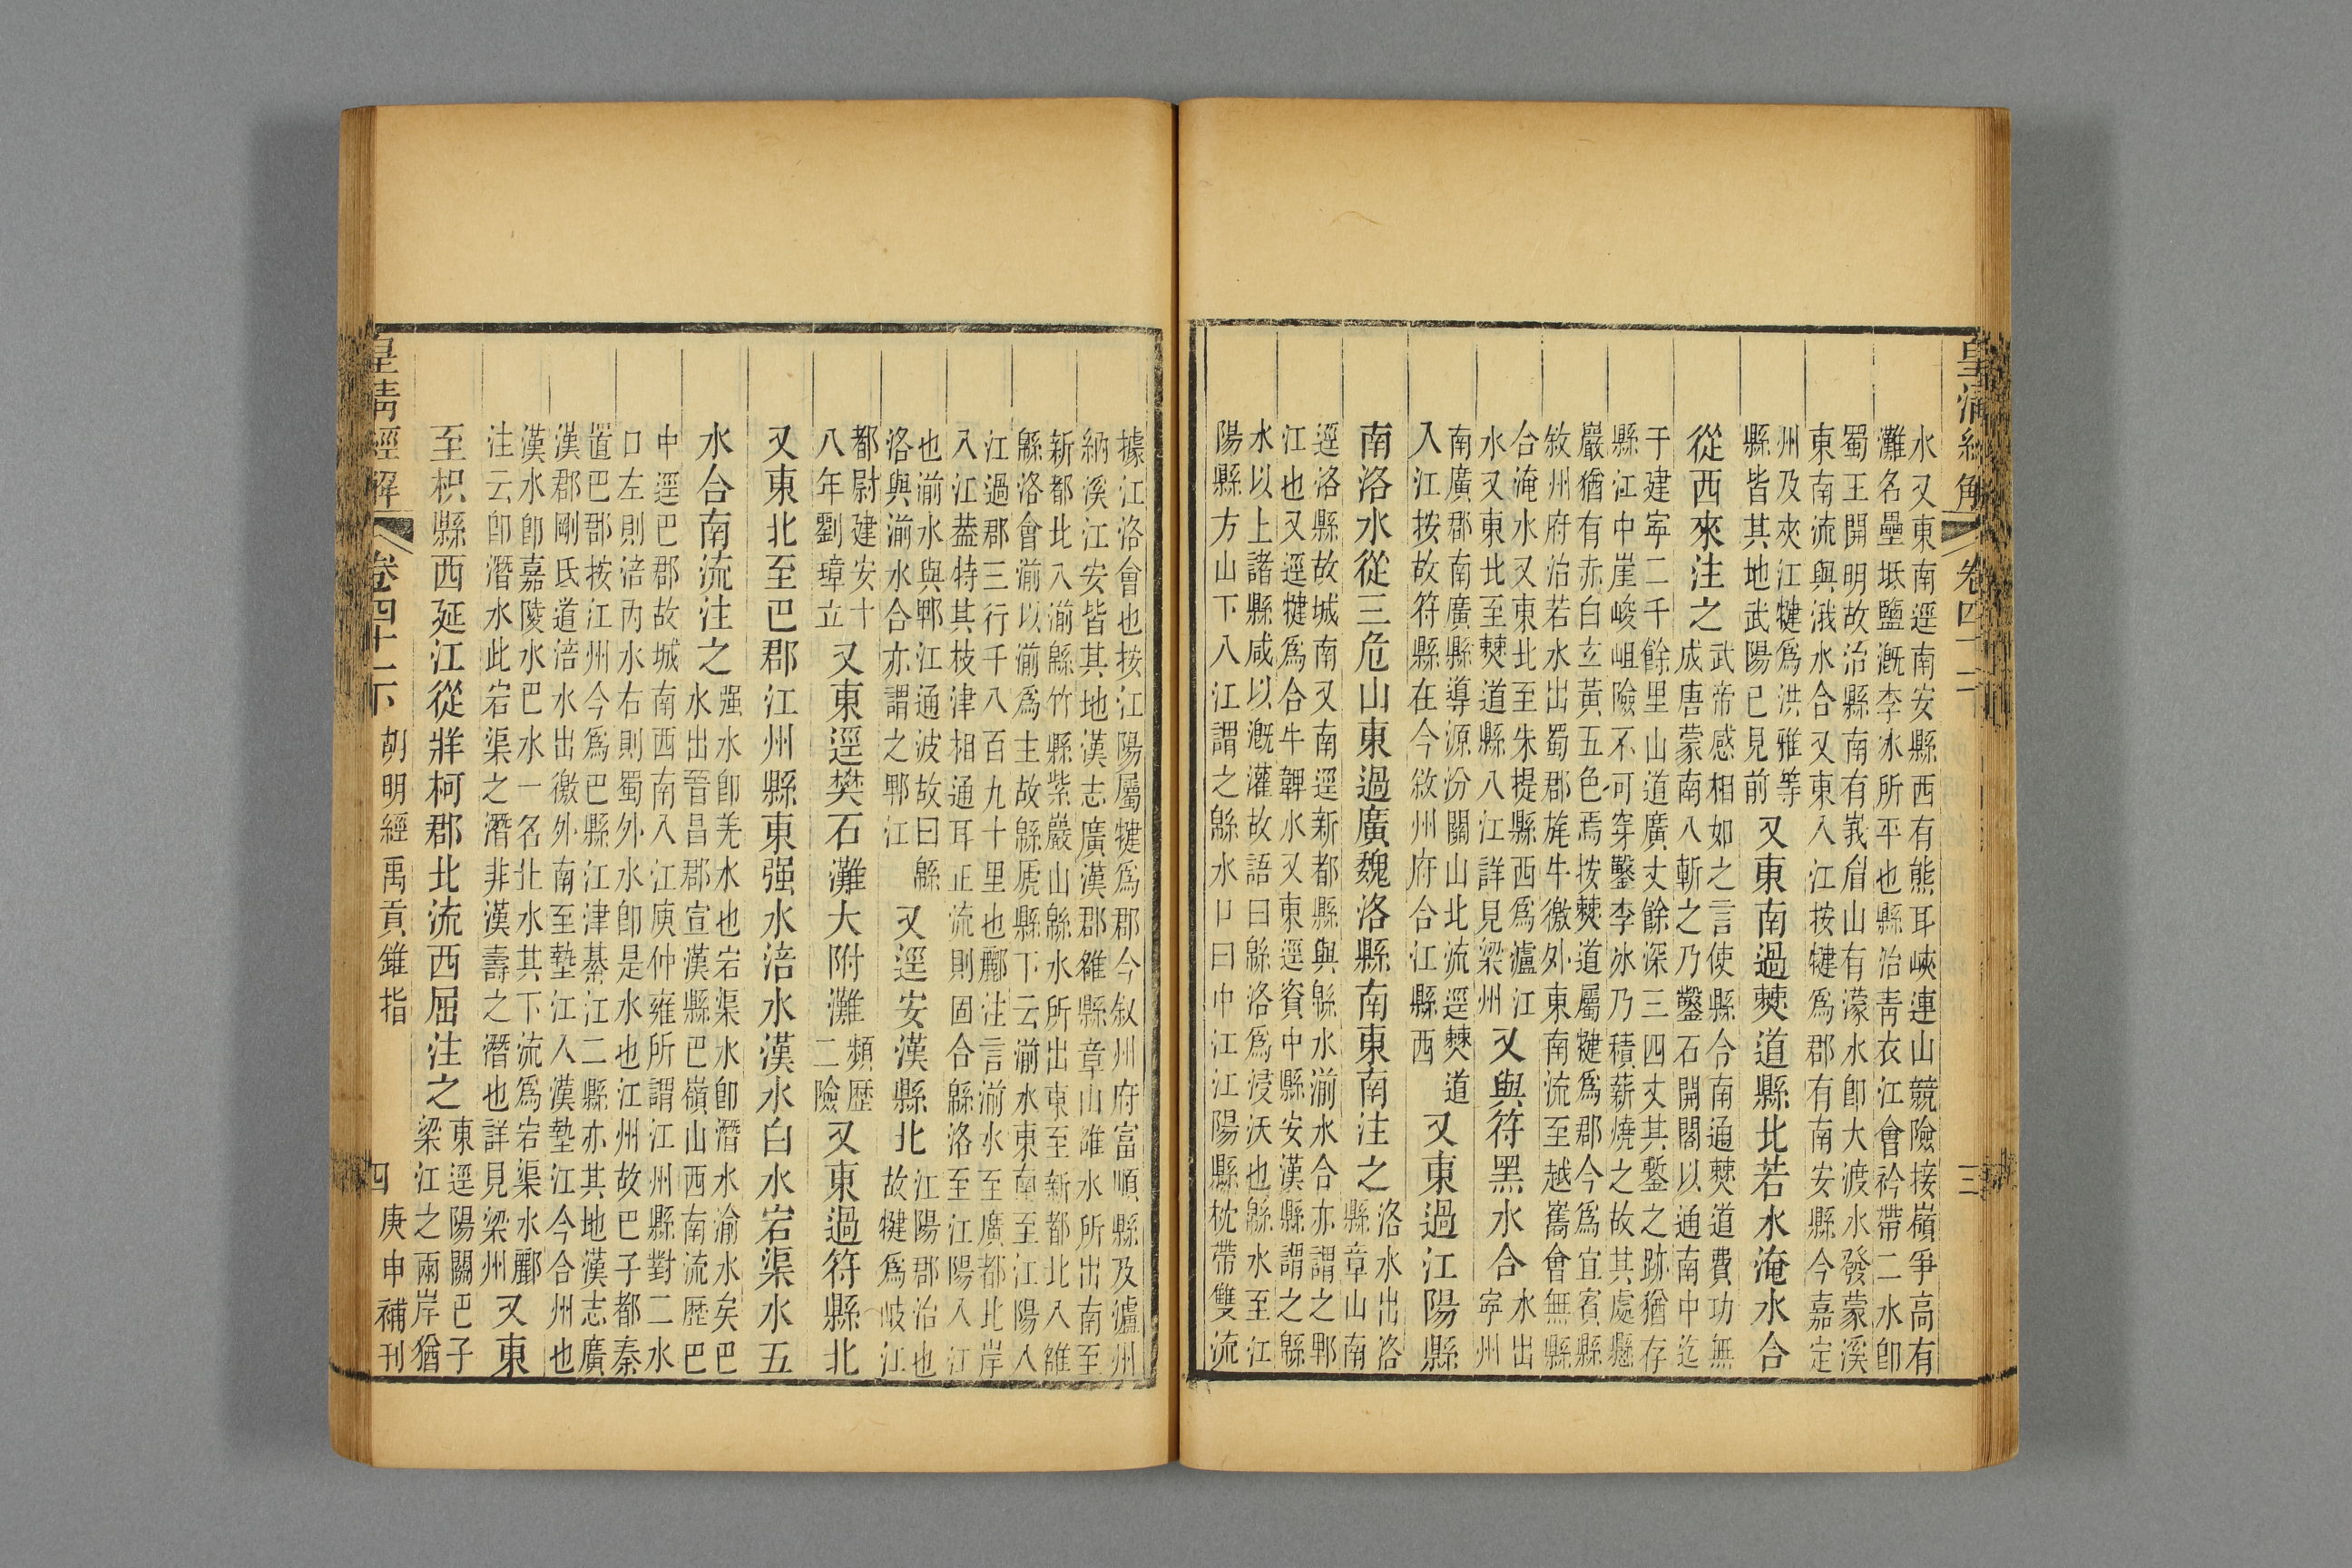 皇清經解 卷四十二 三
水又東南逕南安縣西有熊耳峽連山競險接嶺爭高有
灘名壘坻鹽溉李冰所平也縣治青衣江會衿帶二水卽
蜀王開明故治縣南有峩眉山有濛水卽大渡水發蒙溪
東南流與涐水合又東入江按犍爲郡有南安縣今嘉定
州及夾江犍爲洪雅等
縣皆其地武陽已見前
又東南過僰道縣北若水淹水合
從西來注之
武帝感相如之言使縣令南通僰道費功無
成唐蒙南八斬之乃鑿石開閣以通南中迄
于建寜二千餘里山道廣丈餘深三四丈其鏨之跡猶存
縣江中崖峻岨險不可穿鑿李冰乃積薪燒之故其處懸
巖猶有赤白玄黃五色焉按僰道屬犍爲郡今爲宜賓縣
敘州府治若水出蜀郡旄牛徼外東南流至越巂會無縣
合淹水又東北至朱提縣西爲瀘江
水又東北至僰道縣入江詳見梁州
又與符黑水合
水出寧州
南廣郡南廣縣導源汾關山北流逕僰道
入江按故符縣在今敘州府合江縣西
又東過江陽縣
南洛水從三危山東過廣魏洛縣南東南注之
洛水出洛
縣章山南
逕洛縣故城南又南逕新都縣與緜水湔水合亦謂之郫
江也又逕犍爲合牛鞞水又東逕資中縣安漢縣謂之緜
水以上諸縣咸以溉灌故語曰緜洛爲浸沃也緜水至江
陽縣方山下入江謂之緜水口曰中江江陽縣枕帶雙流
據江洛會也按江陽屬犍爲郡今叙州府富順縣及瀘州
納溪江安皆其地漢志廣漢郡雒縣章山雒水所出南至
新都北入湔緜竹縣紫巖山緜水所出東至新都北入雒
緜洛會湔以湔爲主故緜虒縣下云湔水東南至江陽入
江過郡三行千八百九十里也酈注言湔水至廣都北岸
入江葢特其枝津相通耳正流則固合緜洛至江陽入江
也湔水與郫江通波故曰緜
洛與湔水合亦謂之郫江
又逕安漢縣北
江陽郡治也
故犍爲岐江
都尉建安十
八年劉璋立
又東逕樊石灘大附灘
頻歷
二險
又東過符縣北
又東北至巴郡江州縣東强水涪水漢水白水宕渠水五
水合南流注之
强水卽羌水也宕渠水卽潛水渝水矣巴
水出晉昌郡宣漢縣巴嶺山西南流歷巴
中逕巴郡故城南西南入江庾仲雍所謂江州縣對二水
口左則涪內水右則蜀外水卽是水也江州故巴子都秦
置巴郡按江州今爲巴縣江津綦江二縣亦其地漢志廣
漢郡剛氐道涪水出徼外南至墊江入漢墊江今合州也
漢水卽嘉陵水巴水一名北水其下流爲宕渠水酈
注云卽潛水此宕渠之潛非漢壽之潛也詳見梁州
又東
至枳縣西延江從牂柯郡北流西屈注之
東逕陽關巴子
梁江之兩岸猶
皇清經解 卷四十二下 胡明經禹貢錐指 四 庚申補刊